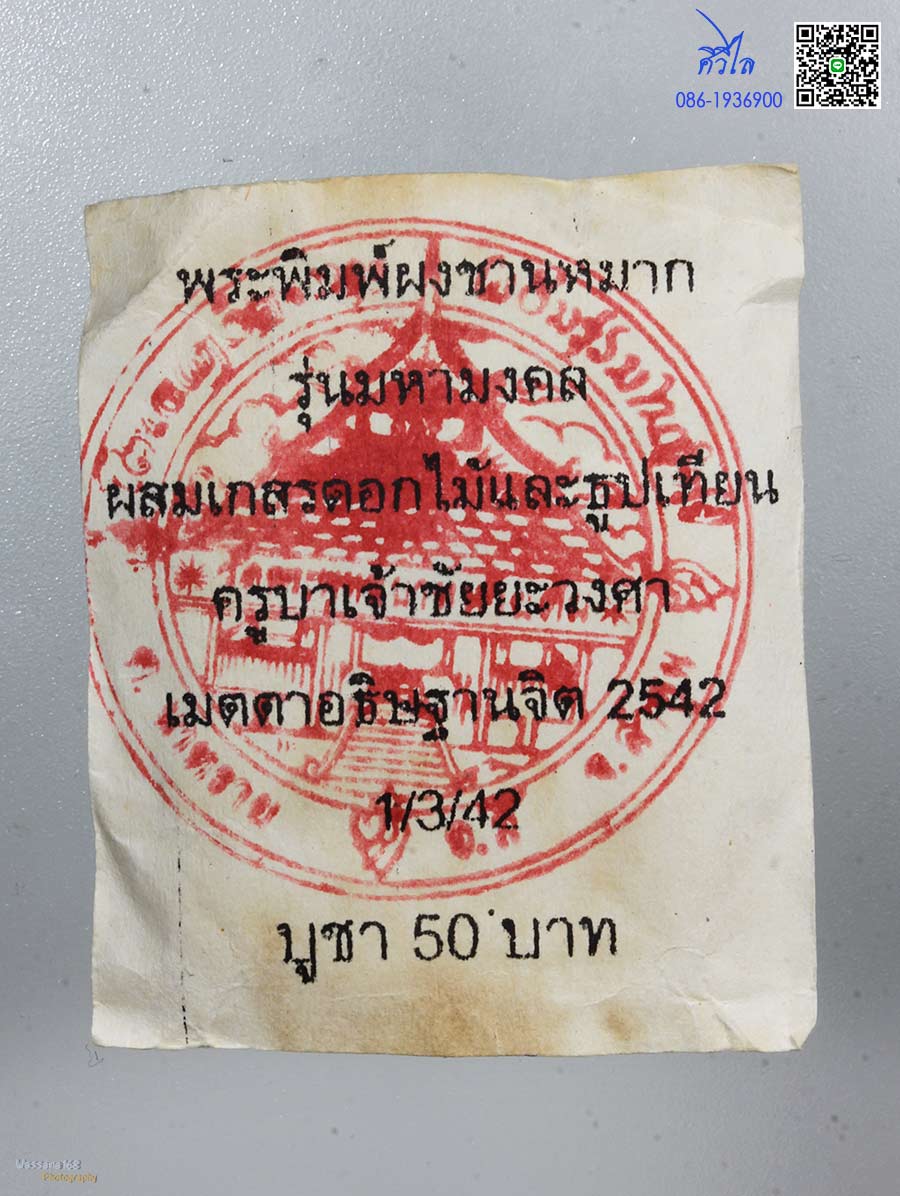 ศิวิไล
086-1936900
พระพิมพ์ผงชานหมาก
รุ่นมหามงคล
ผสมเกสรดอกไม้และธูปเทียน
ครูบาเจ้าชัยยะวงศา
เมตตาอธิษฐานจิต 2542
1/3/42
บูชา 50 บาท
Wassana168
Photography